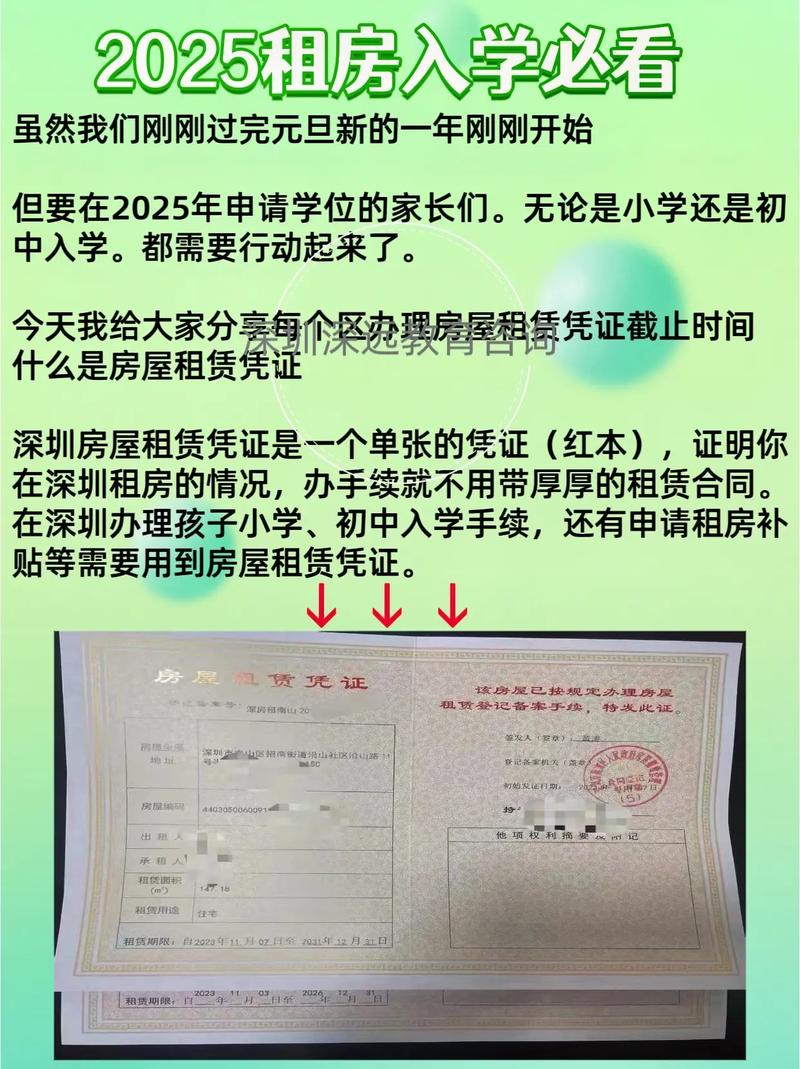 2025租房入学必看
虽然我们刚刚过完元旦新的一年刚刚开始
但要在2025年申请学位的家长们。无论是小学还是初
中入学。都需要行动起来了。
今天我给大家分享每个区办理房屋租赁凭证截止时间
深圳深远教育咨询
什么是房屋租赁凭证
深圳房屋租赁凭证是一个单张的凭证（红本），证明你
在深圳租房的情况，办手续就不用带厚厚的租赁合同。
在深圳办理孩子小学、初中入学手续，还有申请租房补
贴等需要用到房屋租赁凭证。
房屋租赁凭证
登记备案号：深房租南山20
房屋坐落
地址
深圳市南山区招商街道沿山社区沿山路11
号3
房屋编码
4403050060091
出租人
承租人
租赁面积
(㎡)
147.18
租赁用途
住宅
租赁期限：自2023年11月07日至2031年12月31日
该房屋已按规定办理房屋
租赁登记备案手续，特发此证。
签发人（签章）：
登记备案机关（盖章）
初始发证日期：
(5)
持
他项权利摘要及附记
2023 11 03 2026 12 31
租赁期限：自 年 月 日至 年 月 日